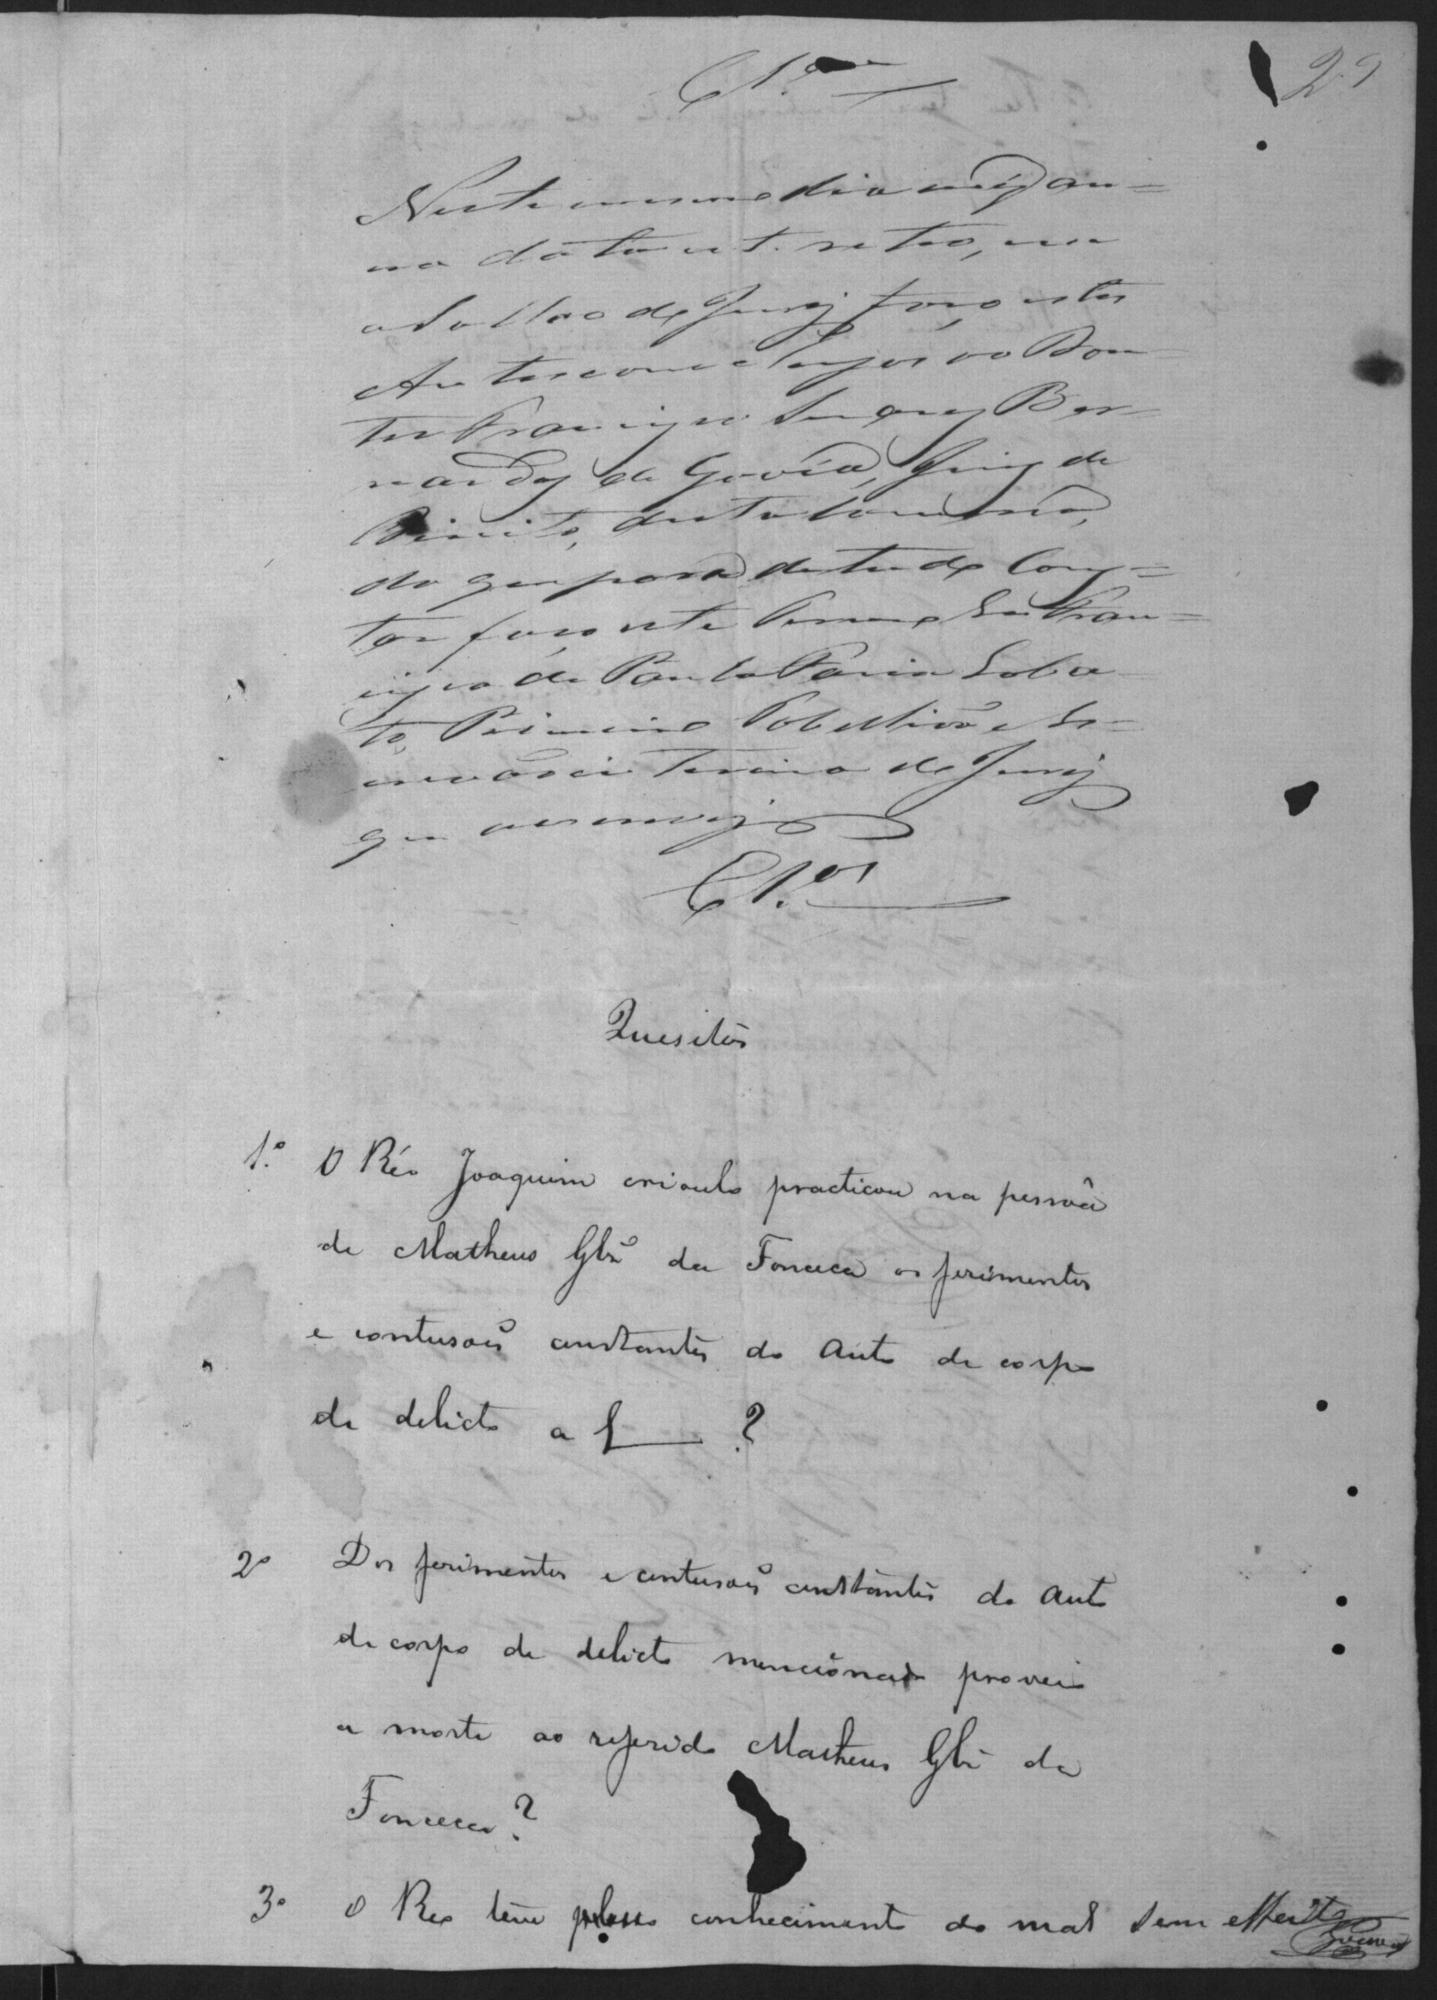 Cl.os
29
Neste mesmo dia mez an-
no data ut retro, na
sallas de Jury faço estes
Autos conclusos ao Dou-
tor Francisco Soares Ber-
nardes de Govêa, Juiz de
Direito, desta Comarca,
do que para de tudo Cons-
tar faço este Termo Eu Fran-
cisco de Paula Faria Loba-
to, Primeiro Tabellião e Es-
crivão de Jury
que escrevy
Cl.os
Quesitos
1.º O Réo Joaquim crioulo practicou na pessôa
de Matheus Glz da Fonceca os ferimentos
e contusoẽs constantes do Auto de corpo
de delicto a f ?
2º Dos ferimentos e contusoẽs constantes do Auto
de corpo de delicto mencionado proveio
a morte ao referido Matheus Glz da
Fonceca?
3º O Reo teve pleno conhecimento do mal Sem effeito